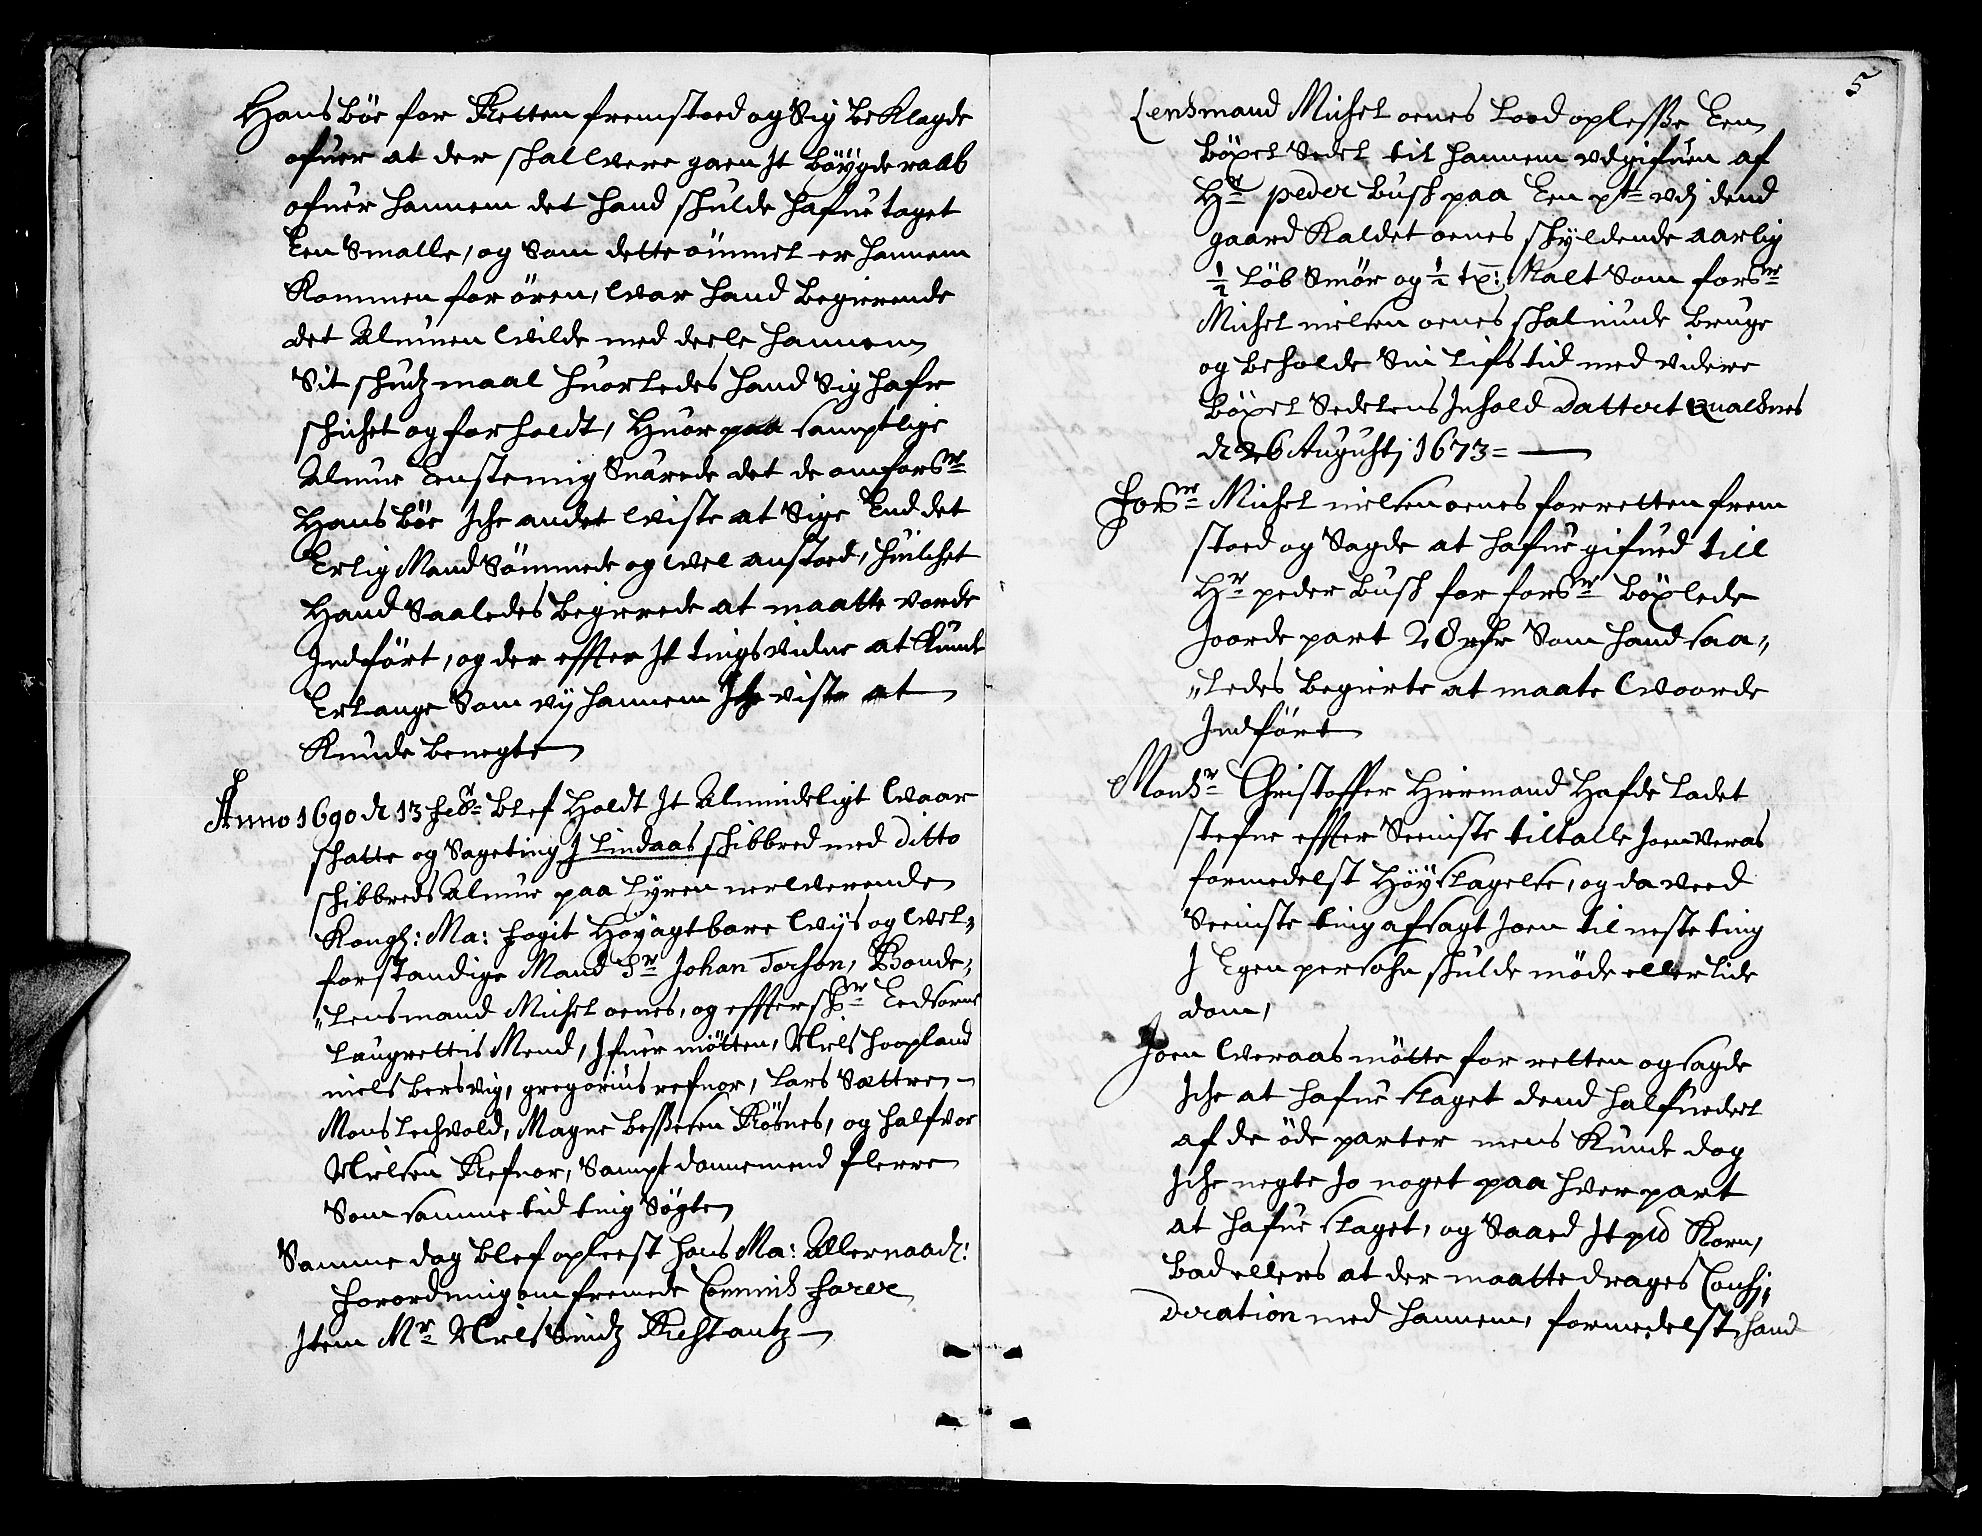 Hans Böe for Retten fremstoed og Sig beklagde
ofuer at der schall were gaen It böygde raab
ofuer hannem det hand schulde hafue taget
Een Smalle, og Som dette ömmel er hannem
kommen for ören, war hand begierende
det Almuen wilde med deele hannem
Sit schudzmaal huorledes hand Sig hafr
schichet og forholdt, Huor paa samptlige
Almue Eenstemig Suarede det de om forsrt
Hans Böe Iche andet wiste at Sige End det
Erlig Mand Sömmede og wel anstoed, huilchet
Hand Saaledes begierede at maatte vorde
Indfört, og der effter It tingsvidne at kunde
Erlange Som vij hannem Iche viste at
kunde benegte
Anno 1690 d 13 febr blef Holdt It Almindeligt Waar
schatte og Sageting I Lindaas schibbred med ditto
schibbreds Almue paa Lyren nerwerende
Kongl: Ma: fogit Höyagtbare Wijs og wel„
forstandige Mand Sr Johan Torson, Bonde„
„lensmand Michel oenes, og effterschr Eedsorne
Laugrettis Mend, Ifuer mötten, Niels hopland
niels bersvig, gregorius refnor, Lars Sættre
Mons Lechvold, Magne besseten Rösnes, og halfvor
Nielsen Refnor, Sampt dannemend flerre
Som samme tid ting Sögte
Samme dag blef oplæst hans Ma: Allernaad:
forordning om fremede Commis farer
Item Mr Niels Smidz Restantz
5
Lensmand Michel oenes Lood oplesse Een
böxel Sedel til hannem vdgifuen af
Hr peder busch paa Een pt vdj dend
gaard kaldet oenes schyldende aarlig
½ Löb Smör og ½ tx: Malt Som forsr
Michel nielsen oenes schal niude bruge
og beholde Sin lifs tid med videre
böxel Sedelens Inhold dattert Qualsnes
d 26 Augusti 1673 =
forsr Michel nielsen oenes for retten frem
stoed og Sagde at hafue gifued till
Hr peder busch for forsr böxlede
Joorde part 28 rdr Som hand saa„
„ledes begierte at maate woorde
Indfört
Monsr Christoffer Hiermand Hafde ladet
stefne effter Seeniste tiltalle Joen veraas
formedelst Höyslagelse, og da veed
Seeniste ting afsagt Joen til neste ting
I Egen persohn schulde möde eller lide
dom,
Joen Weraas mötte for retten og sagde
Iche at hafue slaget dend halfuedeel
af de öde parter mens kunde dog
Iche negte Jo noget paa hver part
at hafue slaget, og Saaed It pd Korn,
bad ellers at der maatte drages Consi„
deration med hannem, formedelst hand